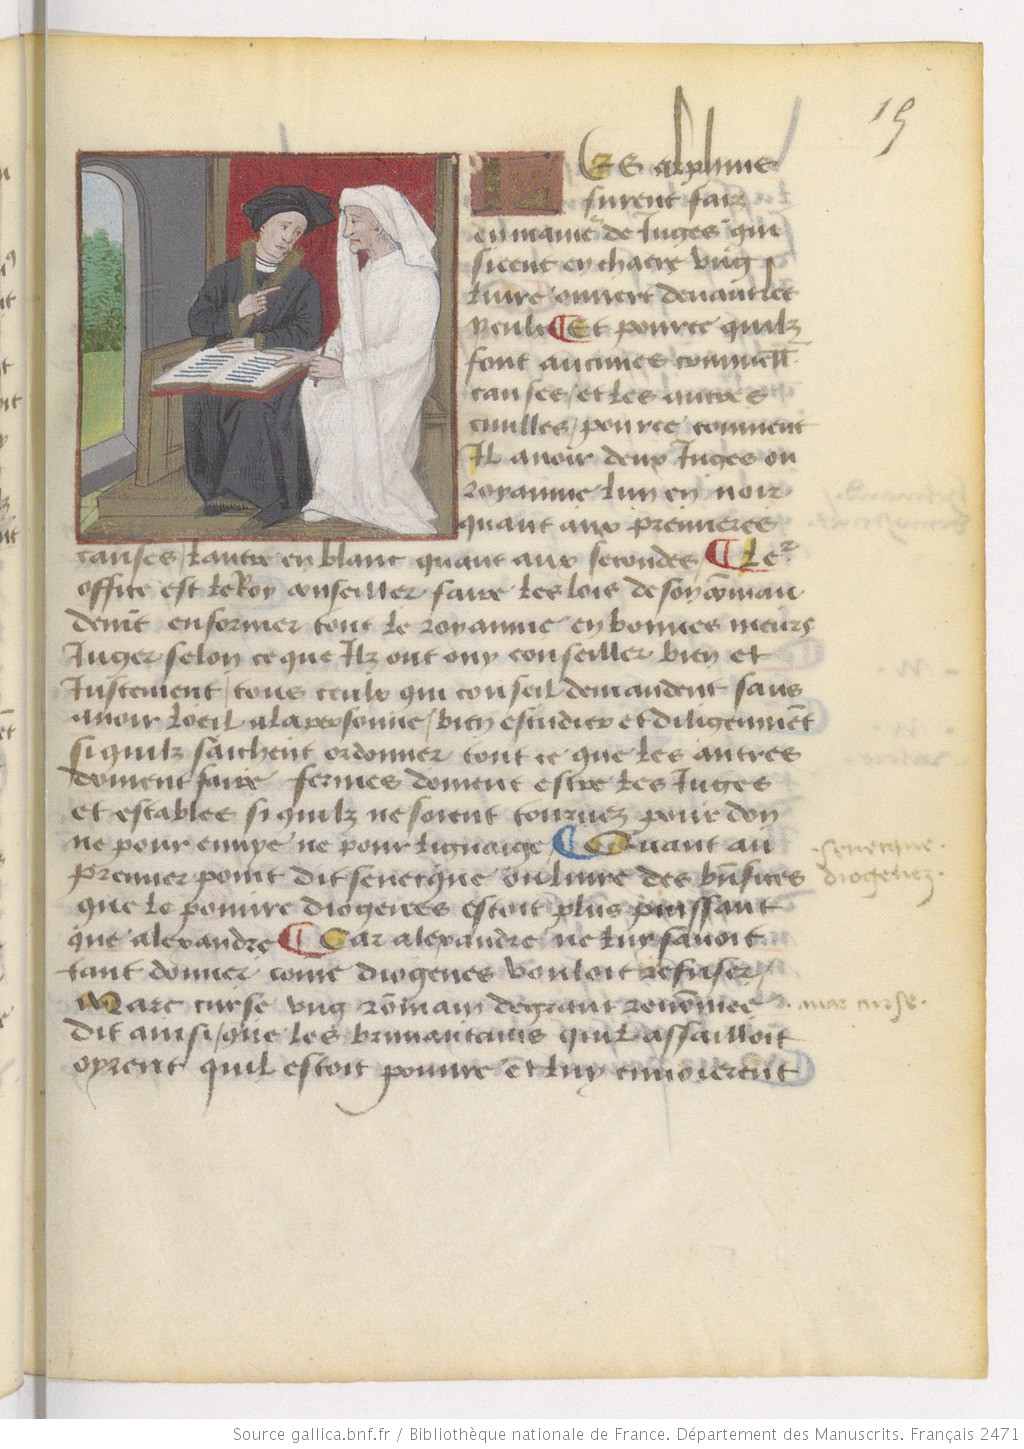 19
LEs alphins
furent faiz
en maniere de Juges qui
sieent en chaere ung
livre ouvert devant les
yeulx Et pource quilz
sont aucunes
causes / et les autres
civilles / pource convient
Il avoir deux Juges ou
royaume lun en noir
quant aux premieres
causes / lautre en blanc quant aux secondes / Ler
office est le Roy conseiller faire les lois de son coman
deme͂t enformer tout le royaume en bonnes meurs
Juger selon ce que Ilz ont ouy conseiller bien et
Justement / tous ceulx qui conseil demandent sans
avoir loeil a la personne / bien estudier et diligemme͂t
si quilz saichent ordonner tout ce que les autres
doivent faire fermes doivent estre les Juges
et estables si quilz ne soient tournez pour don
ne pour envye ne pour lignaige / Quant au
premier point dit senecque ou livre des be͂fices
que le pouvre diogenes estoit plus puissant
que alexandre Car alexandre ne luy savoit
tant donner come diogenes vouloit refuser /
Marc curse ung romain de grant reno͂mee
dit ainsi / que les brunantains quil assailloit
oyrent quil estoit pouvre et luy envoierent
senecque.
diogenez.
marc curse.
Source gallica.bnf.fr / Bibliothèque nationale de France. Département des Manuscrits. Français 2471